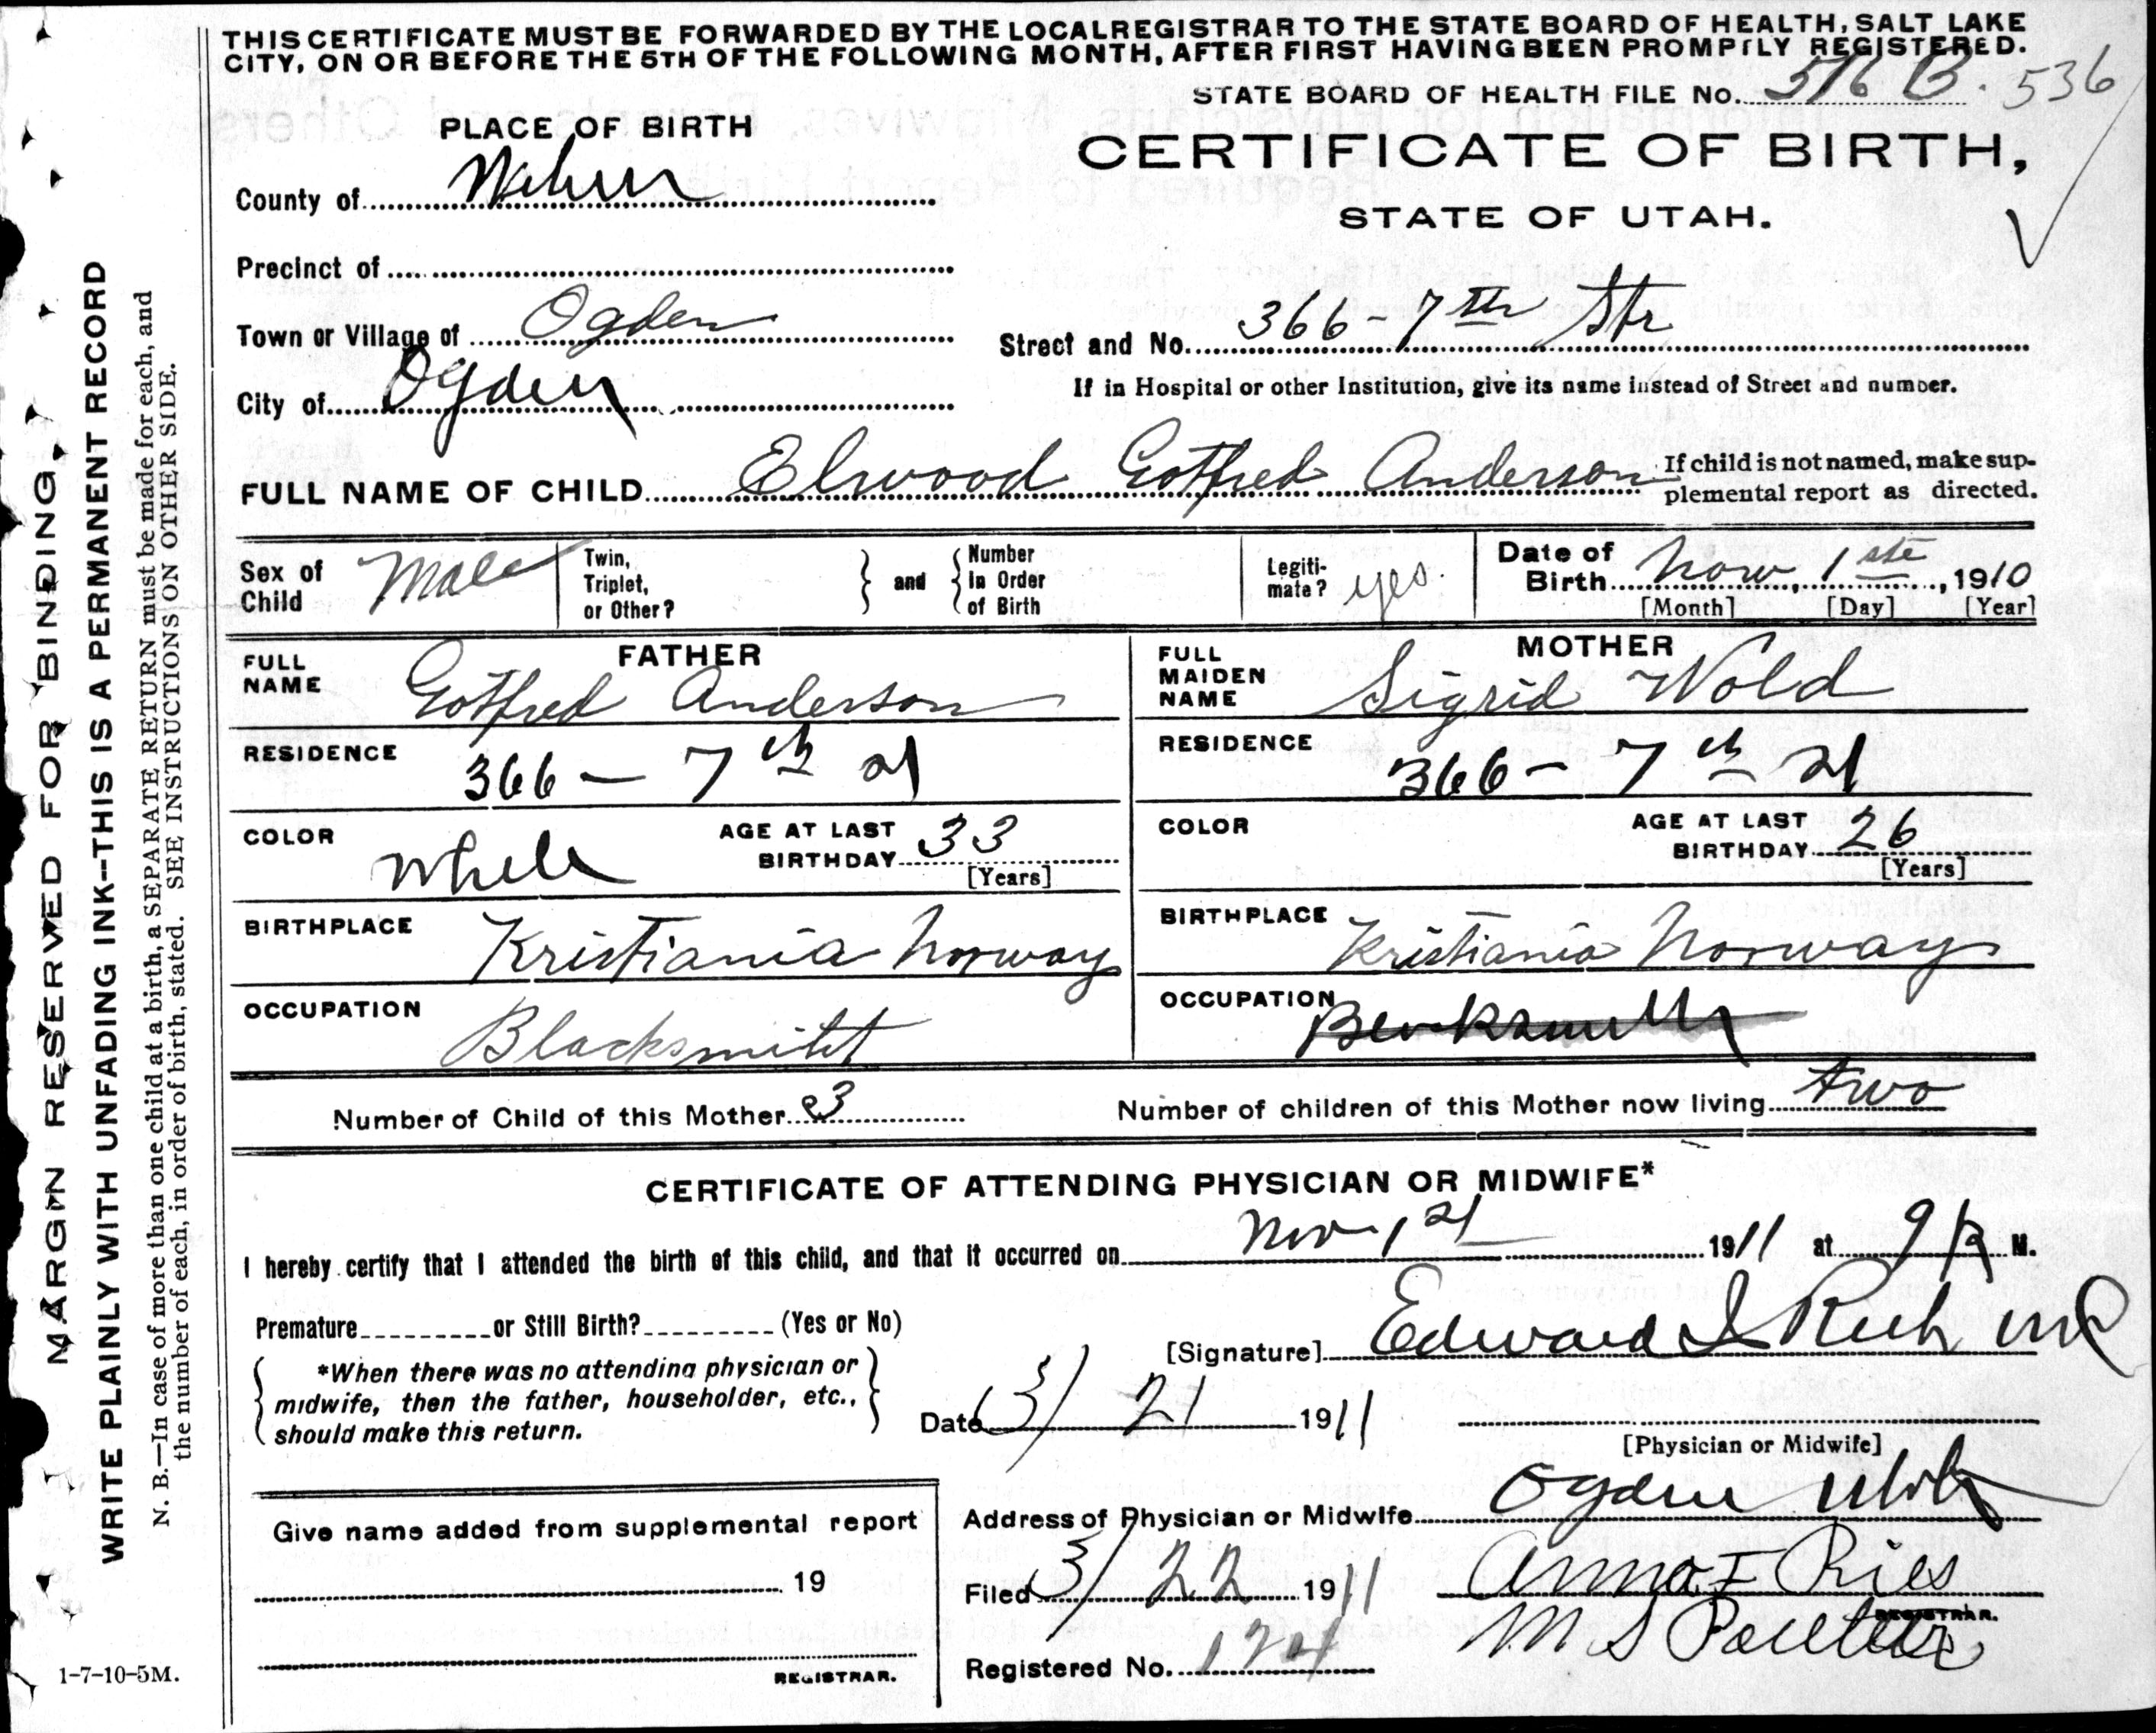 THIS CERTIFICATE MUST BE FORWARDED BY THE LOCAL REGISTRAR TO THE STATE BOARD OF HEALTH, SALT LAKE
CITY, ON OR BEFORE THE 5TH OF THE FOLLOWING MONTH, AFTER FIRST HAVING BEEN PROMPTLY REGISTERED.
STATE BOARD OF HEALTH FILE No. 516 B. 536
PLACE OF BIRTH
CERTIFICATE OF BIRTH,
STATE OF UTAH.
County of Weber
Precinct of
Town or Village of Ogden
Street and No. 366-7th Str
If in Hospital or other Institution, give its name instead of Street and number.
City of Ogden
FULL NAME OF CHILD Elwood Gotfred Anderson
If child is not named, make sup-
plemental report as directed.
Sex of Child Male
Twin, Triplet, or Other?
and
Number In Order of Birth
Legiti-
mate? yes.
Date of Birth Nov, 1ste, 1910
[Month] [Day] [Year]
FATHER
FULL NAME Gotfred Anderson
RESIDENCE 366 - 7th st
COLOR White
AGE AT LAST BIRTHDAY 33
[Years]
BIRTHPLACE Kristiania Norway
OCCUPATION Blacksmith
MOTHER
FULL MAIDEN NAME Sigrid Wold
RESIDENCE 366 - 7th st
COLOR
AGE AT LAST BIRTHDAY 26
[Years]
BIRTHPLACE Kristiania Norway
OCCUPATION
Number of Child of this Mother 3
Number of children of this Mother now living two
CERTIFICATE OF ATTENDING PHYSICIAN OR MIDWIFE*
I hereby certify that I attended the birth of this child, and that it occurred on Nov 1st 1911 at 9 M.
Premature or Still Birth? (Yes or No)
[Signature] Edward I Rich MD
*When there was no attending physician or
midwife, then the father, householder, etc.,
should make this return.
Date 3/21 1911
[Physician or Midwife]
Address of Physician or Midwife Ogden Utah
Give name added from supplemental report
19
REGISTRAR.
Filed 3/22 1911
Anna F Ries
REGISTRAR.
M S Poulter
Registered No. 174
1-7-10-5M.
MARGIN RESERVED FOR BINDING.
WRITE PLAINLY WITH UNFADING INK--THIS IS A PERMANENT RECORD
N. B.—In case of more than one child at a birth, a SEPARATE RETURN must be made for each, and
the number of each, in order of birth, stated. SEE INSTRUCTIONS ON OTHER SIDE.